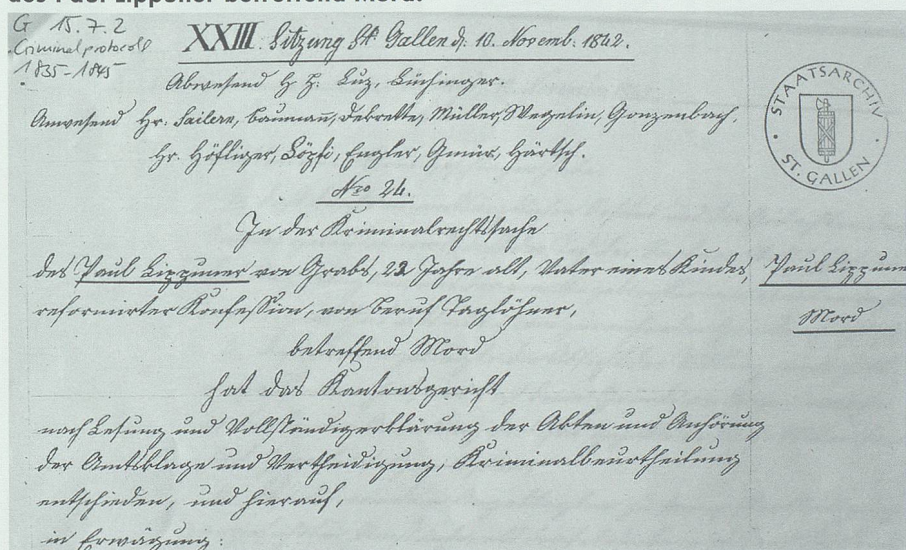 des Paul Lippener betreffend Mord.
G 15.7.2
Criminalprotocoll
1835-1845
XXIII. Sitzung St Gallen d. 10. Novemb. 1842.
Abwesend H. H. Luz, Büchinger.
Anwesend Hr. Sailern, Baumann, Müller, Wegelin, Gonzenbach,
Hr. Höfliger, Göpfi, Engler, Gmür, Härtsch.
Nro 24.
In der Kriminalrechtssache
des Paul Lippuner von Grabs, 22 Jahre alt, Vater eines Kindes,
reformirter Konfession, von Beruf Taglöhner,
betreffend Mord
hat das Kantonsgericht
nach Lesung und Vollständigerklärung der Akten und Anhörung
der Amtsklage und Vertheidigung, Kriminalbeurtheilung
entschieden, und hierauf,
in Erwägung:
Paul Lippune
Mord
STAATSARCHIV
ST. GALLEN